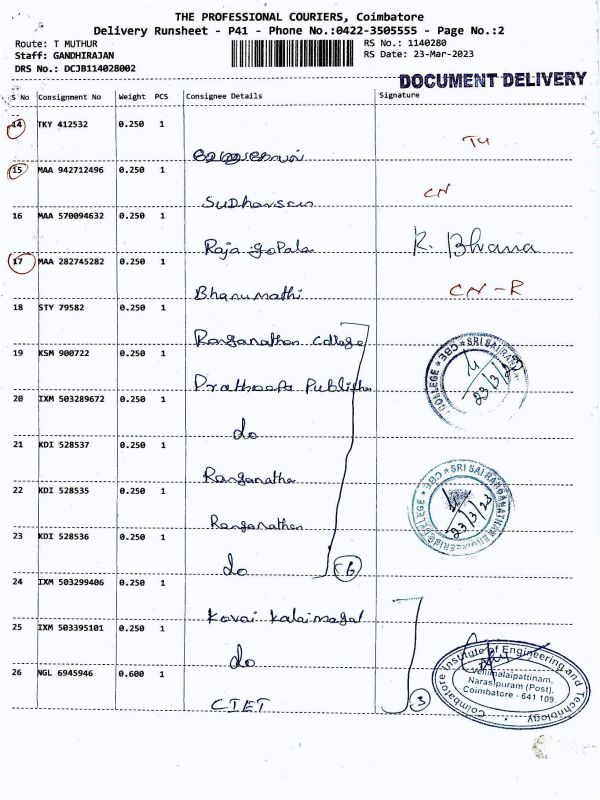 THE PROFESSIONAL COURIERS, Coimbatore
Delivery Runsheet - P41 - Phone No.:0422-3505555 - Page No.:2
Route: T MUTHUR
RS No.: 1140280
Staff: GANDHIRAJAN
RS Date: 23-Mar-2023
DRS No.: DCJB114028002
DOCUMENT DELIVERY
S No Consignment No Weight PCS Consignee Details Signature
14 TKY 412532 0.250 1
15 MAA 942712496 0.250 1
Sudharsan CN
16 MAA 570094632 0.250 1
Raja gopala R. Bhana
17 MAA 282745282 0.250 1
Bhanumathi CN-R
18 STY 79582 0.250 1
Ranganathan College
19 KSM 900722 0.250 1
Prathoopa Publisha
20 IXM 503289672 0.250 1
do
21 KDI 528537 0.250 1
Ranganatha
22 KDI 528535 0.250 1
Ranganathan
23 KDI 528536 0.250 1
do 6
24 IXM 503299406 0.250 1
Kovai Kalaimagal
25 IXM 503395101 0.250 1
do
26 NGL 6945946 0.600 1
CIET 3
COLLEGE * CBE * SRI SAI RAN
23/3/23
SRI SAI RANGANATHAN ENGINEERING COLLEGE * CBE *
23/3/23
Coimbatore Institute of Engineering and Technology
Vellimalaipattinam,
Narasipuram (Post),
Coimbatore - 641 109.